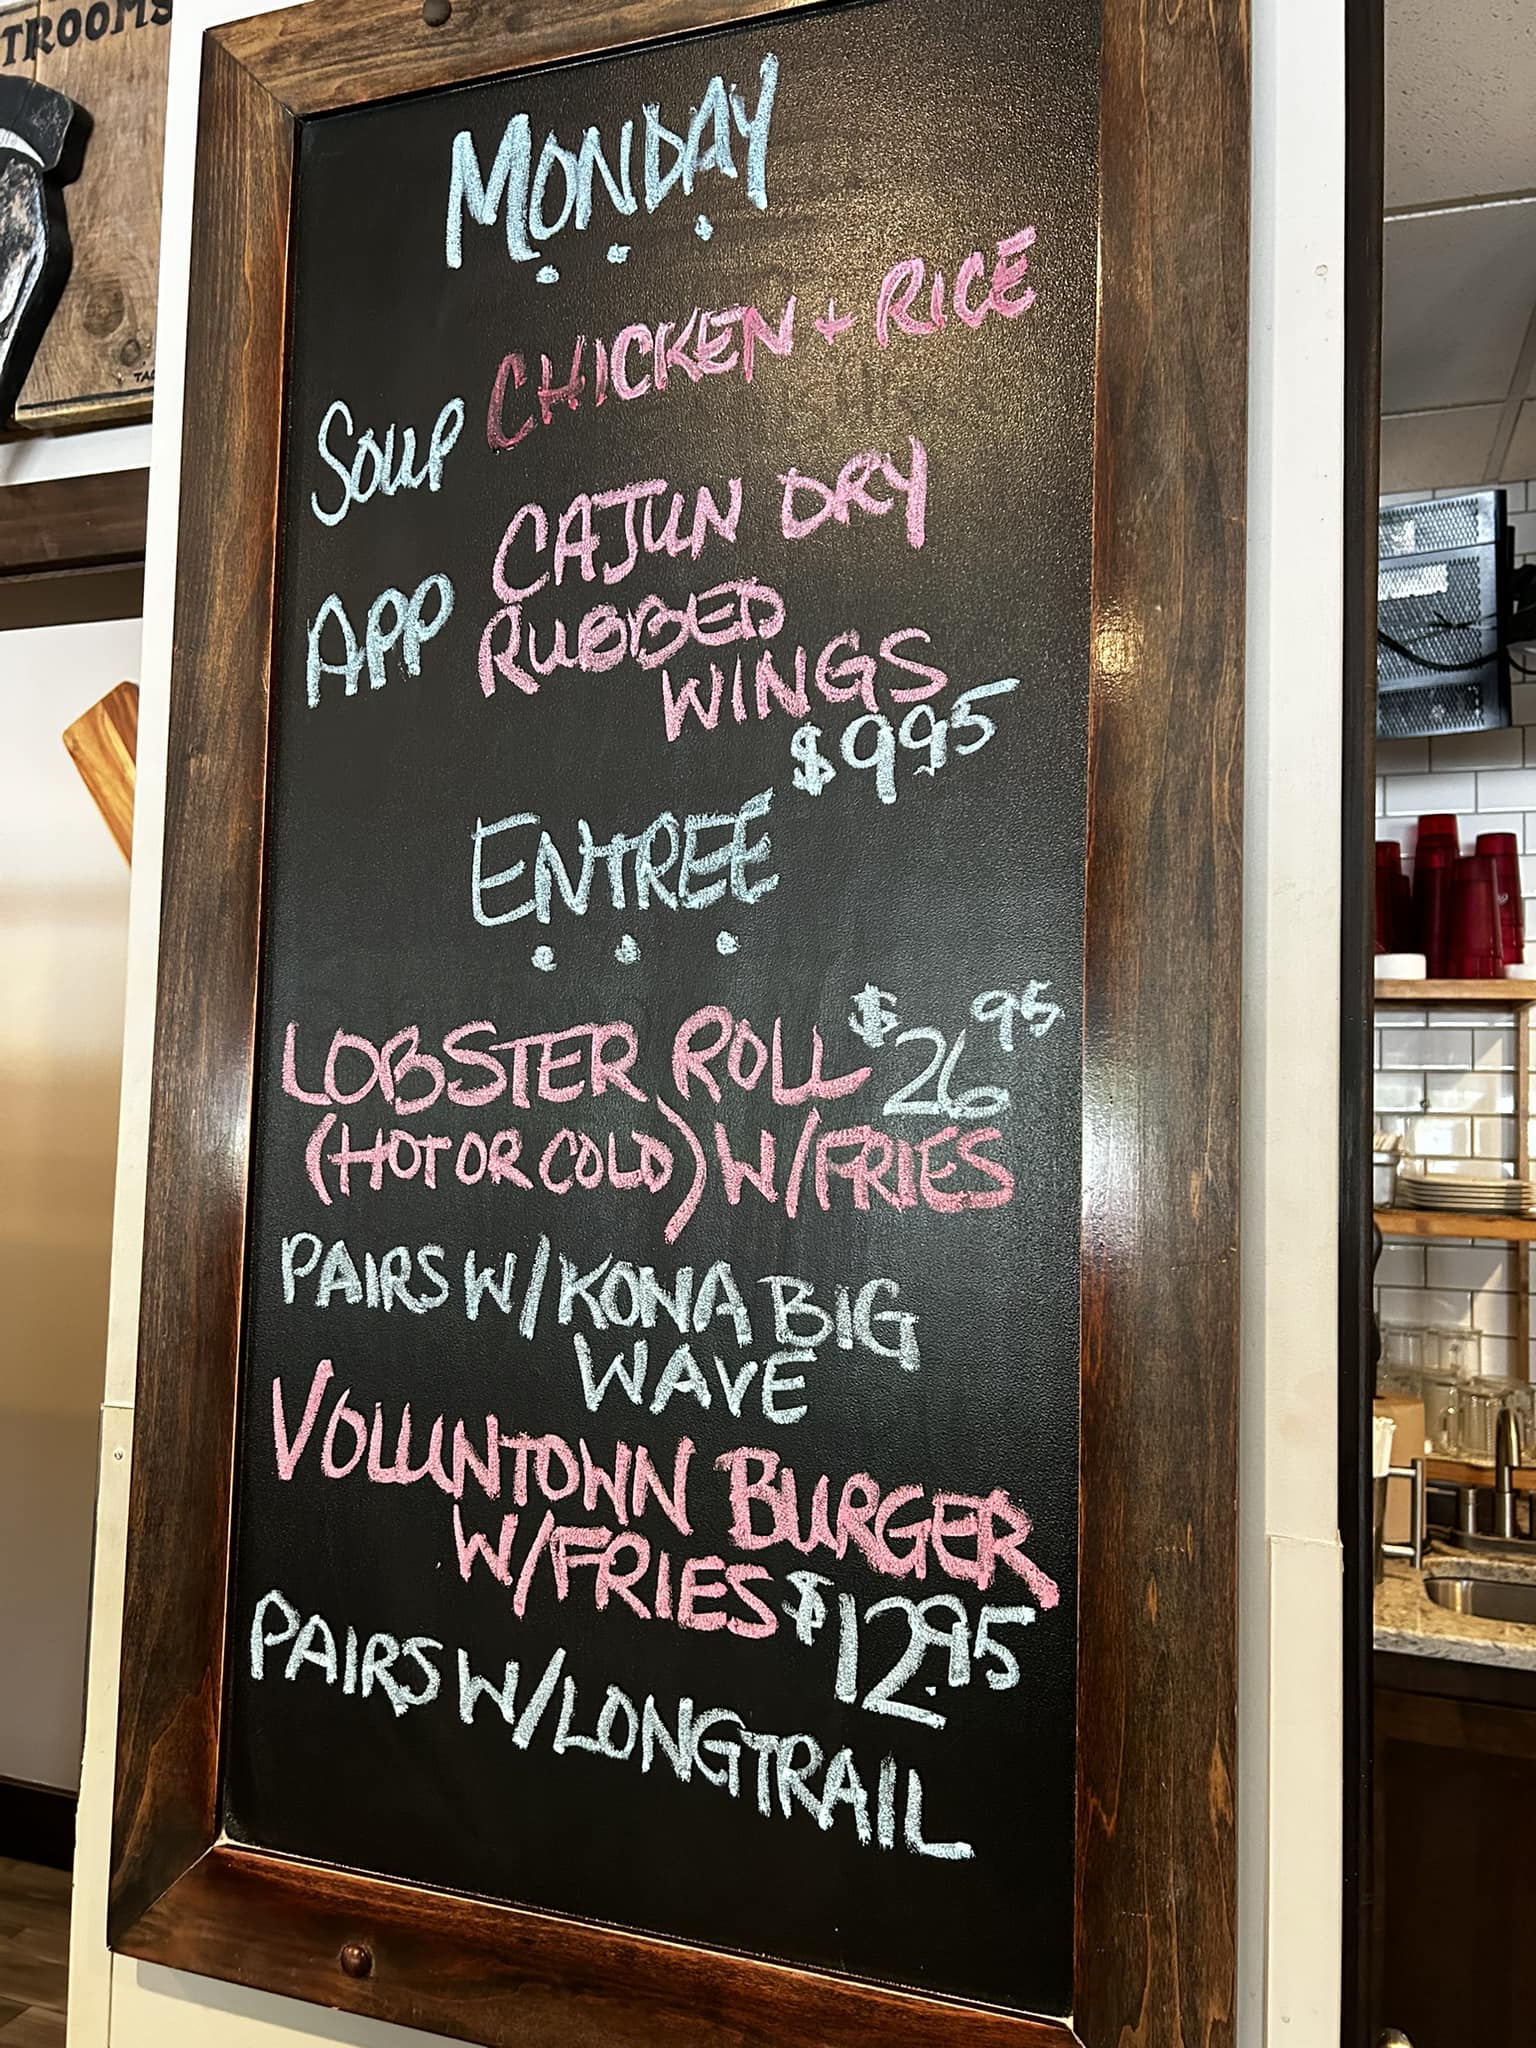 TROOMS
TAC
MONDAY
SOUP CHICKEN + RICE
APP CAJUN DRY
RUBBED
WINGS
$9.95
ENTREE
LOBSTER ROLL $26.95
(HOT OR COLD) W/FRIES
PAIRS W/KONA BIG
WAVE
VOLUNTOWN BURGER
W/FRIES $12.95
PAIRS W/LONGTRAIL